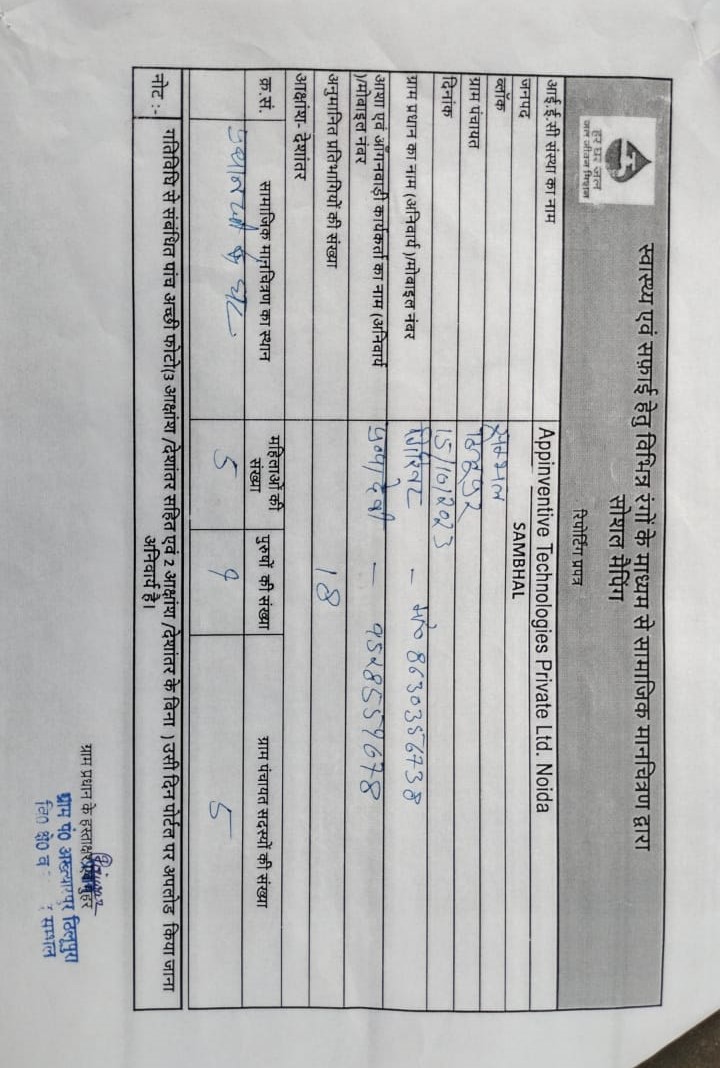 हर घर जल
जल जीवन मिशन
स्वास्थ्य एवं सफ़ाई हेतु विभिन्न रंगों के माध्यम से सामाजिक मानचित्रण द्वारा
सोशल मैपिंग
रिपोर्टिंग प्रपत्र
आई.ई.सी संस्था का नाम Appinventive Technologies Private Ltd. Noida
जनपद SAMBHAL
ब्लॉक सम्भल
ग्राम पंचायत
दिनांक 15/10/2023
ग्राम प्रधान का नाम (अनिवार्य )/मोबाइल नंबर - मो० 8630356738
आशा एवं आँगनवाड़ी कार्यकर्ता का नाम (अनिवार्य
)/मोबाइल नंबर - 9528559678
अनुमानित प्रतिभागियों की संख्या 18
आक्षांश- देशांतर
क्र.सं. सामाजिक मानचित्रण का स्थान महिलाओं की संख्या पुरुषों की संख्या ग्राम पंचायत सदस्यों की संख्या
प्रधान जी के घर 5 9 5
नोट :- गतिविधि से संबंधित पांच अच्छी फोटो(3 आक्षांश /देशांतर सहित एवं 2 आक्षांश /देशांतर के बिना ) उसी दिन पोर्टल पर अपलोड किया जाना
अनिवार्य है।
ग्राम प्रधान के हस्ताक्षर
ग्राम पं०
सम्भल